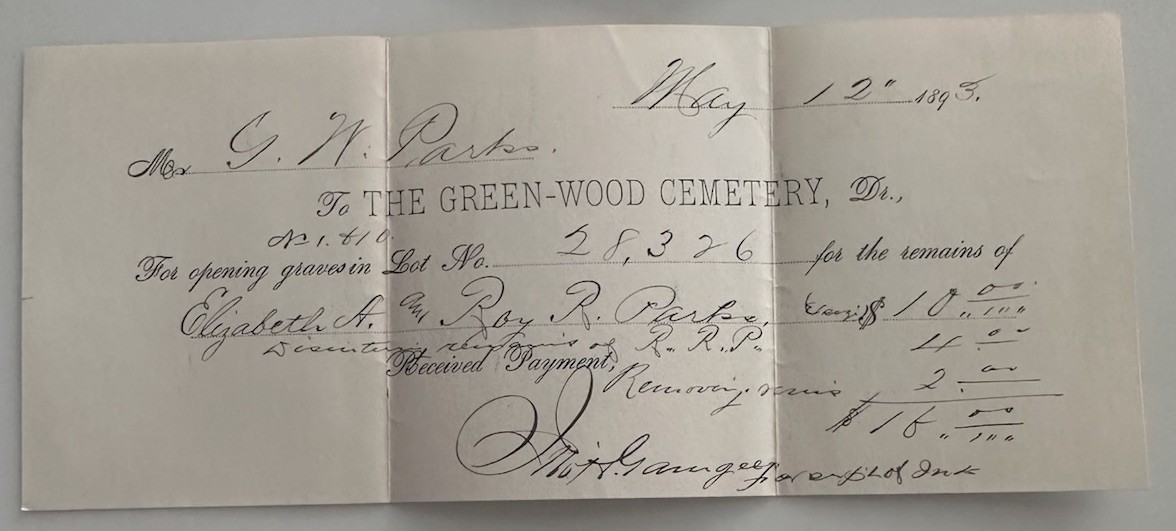 May 12" 1893.
Mr G. W. Parks.
To THE GREEN-WOOD CEMETERY, Dr.,
No 1. &
For opening graves in Lot No. 28,326 for the remains of
Elizabeth A. and Roy R. Parks, $ 10 00
Disinterring remains of R. R. P. 4 00
Received Payment,
Removing 2 00
$ 16 00